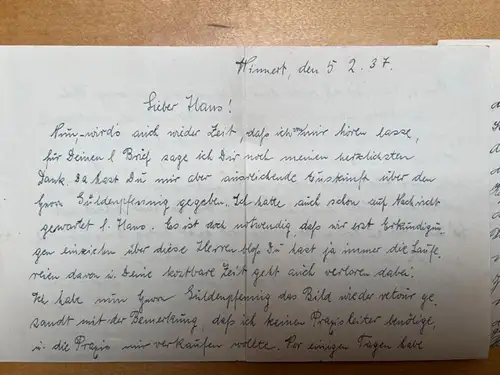 Winnert, den 5 2. 37.
Lieber Hans!
Nun, wird's auch wider Zeit, daß ich von mir hören lasse,
für Deinen l Brief, sage ich Dir noch meinen herzlichsten
Dank. Da hast Du mir aber ausreichende Auskunft über den
Herrn Güldenpfennig gegeben. Ich hatte auch schon auf Nachricht
gewartet l. Hans. Es ist doch notwendig, daß wir erst Erkündigun
gen einziehen über diese Herren, bloß Du hast ja immer die Laufe,
reien davon u. Deine kostbare Zeit geht auch verloren dabei.
Ich habe nun Herrn Güldenpfennig das Bild wieder retour ge,
sandt mit der Bemerkung, daß ich keinen Praxisleiter benötige,
u. die Praxis nur verkaufen wollte. Vor einigen Tagen habe